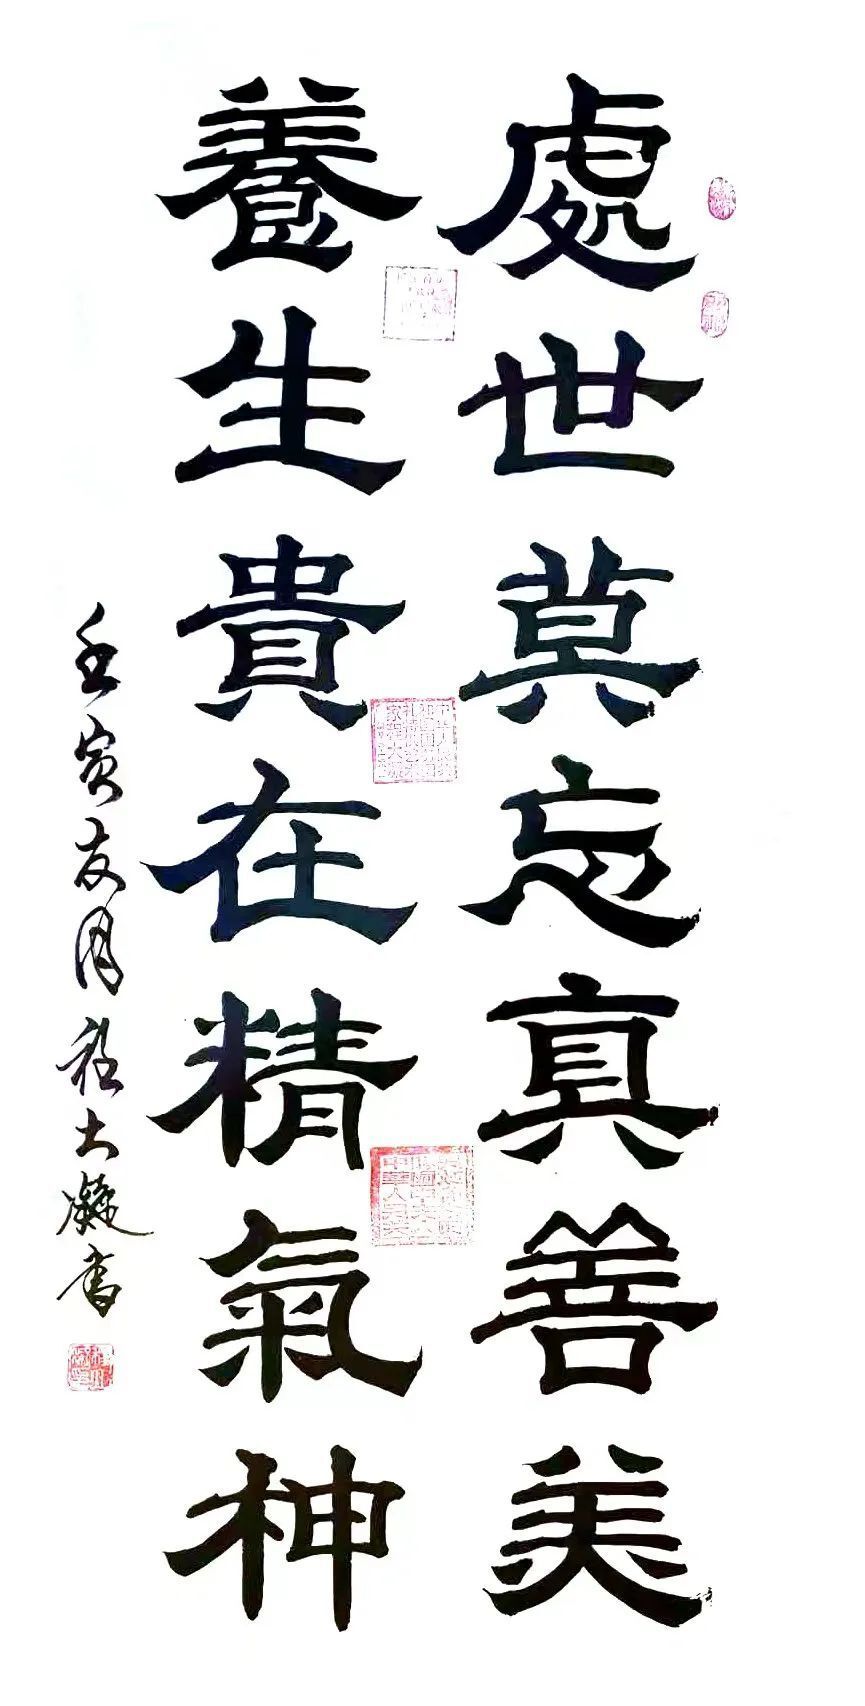 處世莫忘真善美
養生貴在精氣神
壬寅月程大凝书